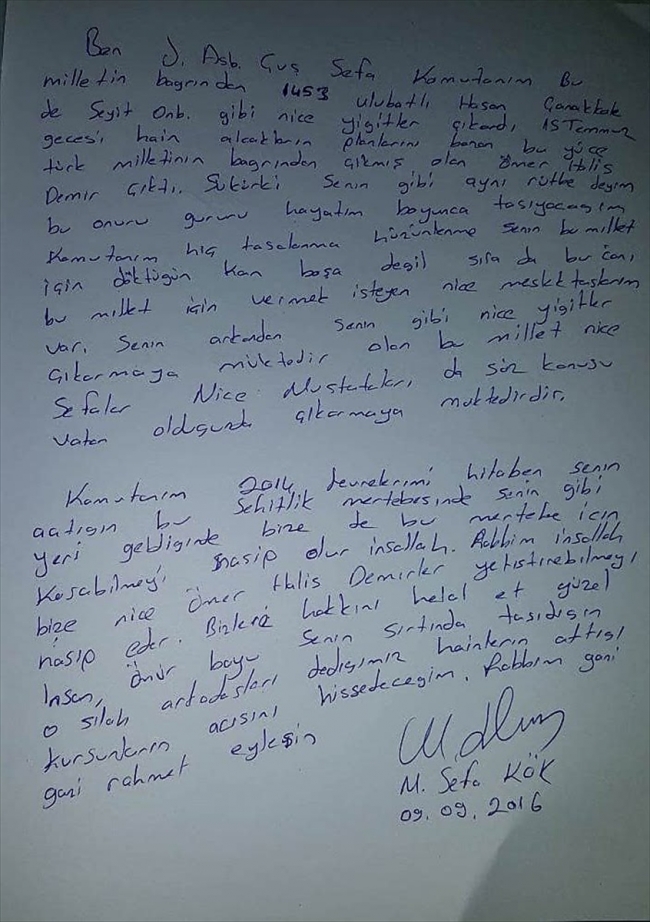 Ben J. Asb. Çvş Sefa Komutanım Bu
milletin bagrından 1453 ulubatlı Hasan Çanakkale
de Seyit Onb. gibi nice yigitler çıkardı, 15 Temmuz
gecesi hain alcakların planlarını bozan bu yüce
türk milletinin bagrından çıkmış olan Ömer Halis
Demir çıktı. Sükürki Senin gibi aynı rütbe deyim
bu onuru gururu hayatım boyunca tasıyacagım
Komutanım hiç tasalanma hüzünlenme senin bu millet
için döktügün kan bosa degil sıra da bu canı
bu millet için vermek isteyen nice meslektaslarım
var. Senin arkandan senin gibi nice yigitler
çıkarmaya müktedir olan bu millet nice
Sefalar Nice Mustafaları da söz konusu
vatan oldugunda çıkarmaya muktedirdir.
Komutanım 2014 devrelerimi hitaben senin
actıgın bu Sehitlik mertebesinde senin gibi
yeri geldiginde bize de bu mertebe icin
Kosabilmeyi nasip olur insallah. Rabbim insallah
bize nice Ömer Halis Demirler yetistirebilmeyi
nasip eder. Bizlere hakkını helal et güzel
Insan, Ömür boyu senin sırtında tasıdıgın
o silah arkadasları dedigimiz hainlerin attıgı
kursunların acısını hissedecegim. Rabbim gani
gani rahmet eylesin
M. Sefa KÖK
09.09.2016